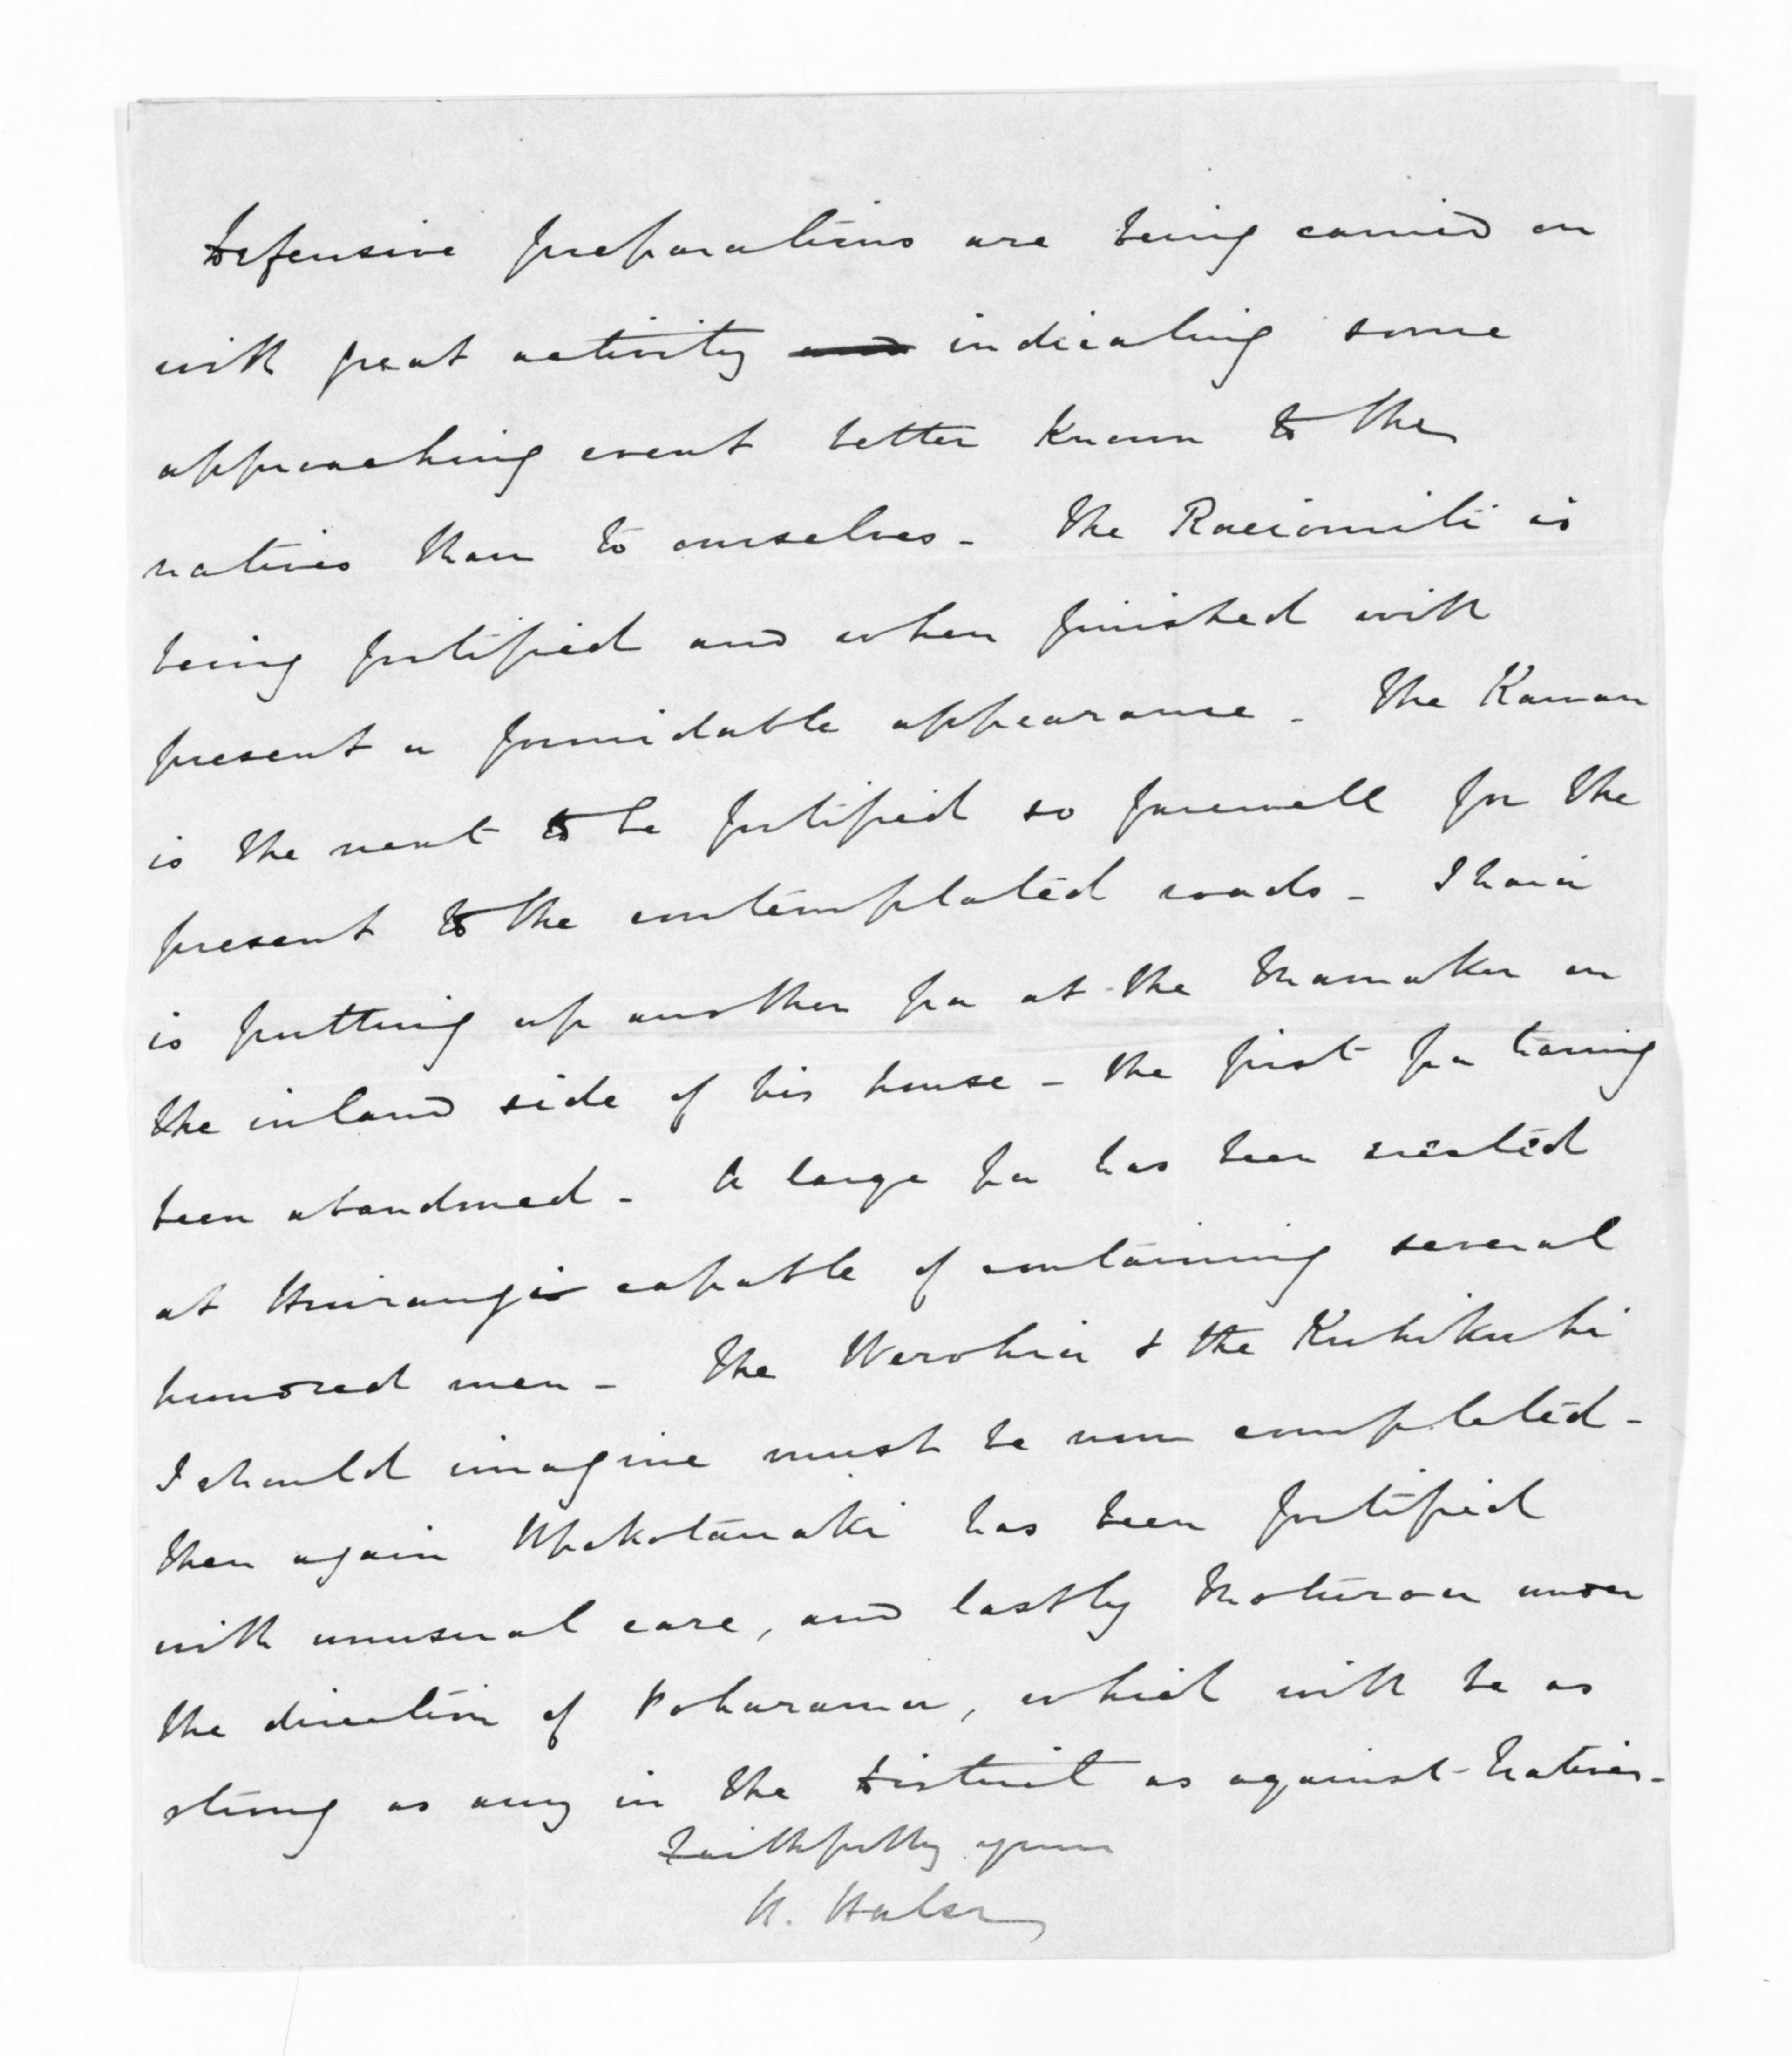 Defensive preparations are being carried on
with great activity and indicating some
approaching event better known to the
natives than to ourselves - The Raeiomiti is
being fortified and when finished will
present a formidable appearance - The Kawau
is the next to be fortified so farewell for the
present to the contemplated roads - Ihaia
is putting up another pa at the Mamaku on
the inland side of his house - the first pa having
been abandoned - A large pa has been erected
at Huirangi capable of containing several
hundred men - The Werohia & the Kuhikuhi
I should imagine must be now completed -
Then again Upokotauaki has been fortified
with unusual care, and lastly Moturoa under
the direction of Poharama, which will be as
strong as any in the District as against Natives -
Faithfully yours
H. Halse